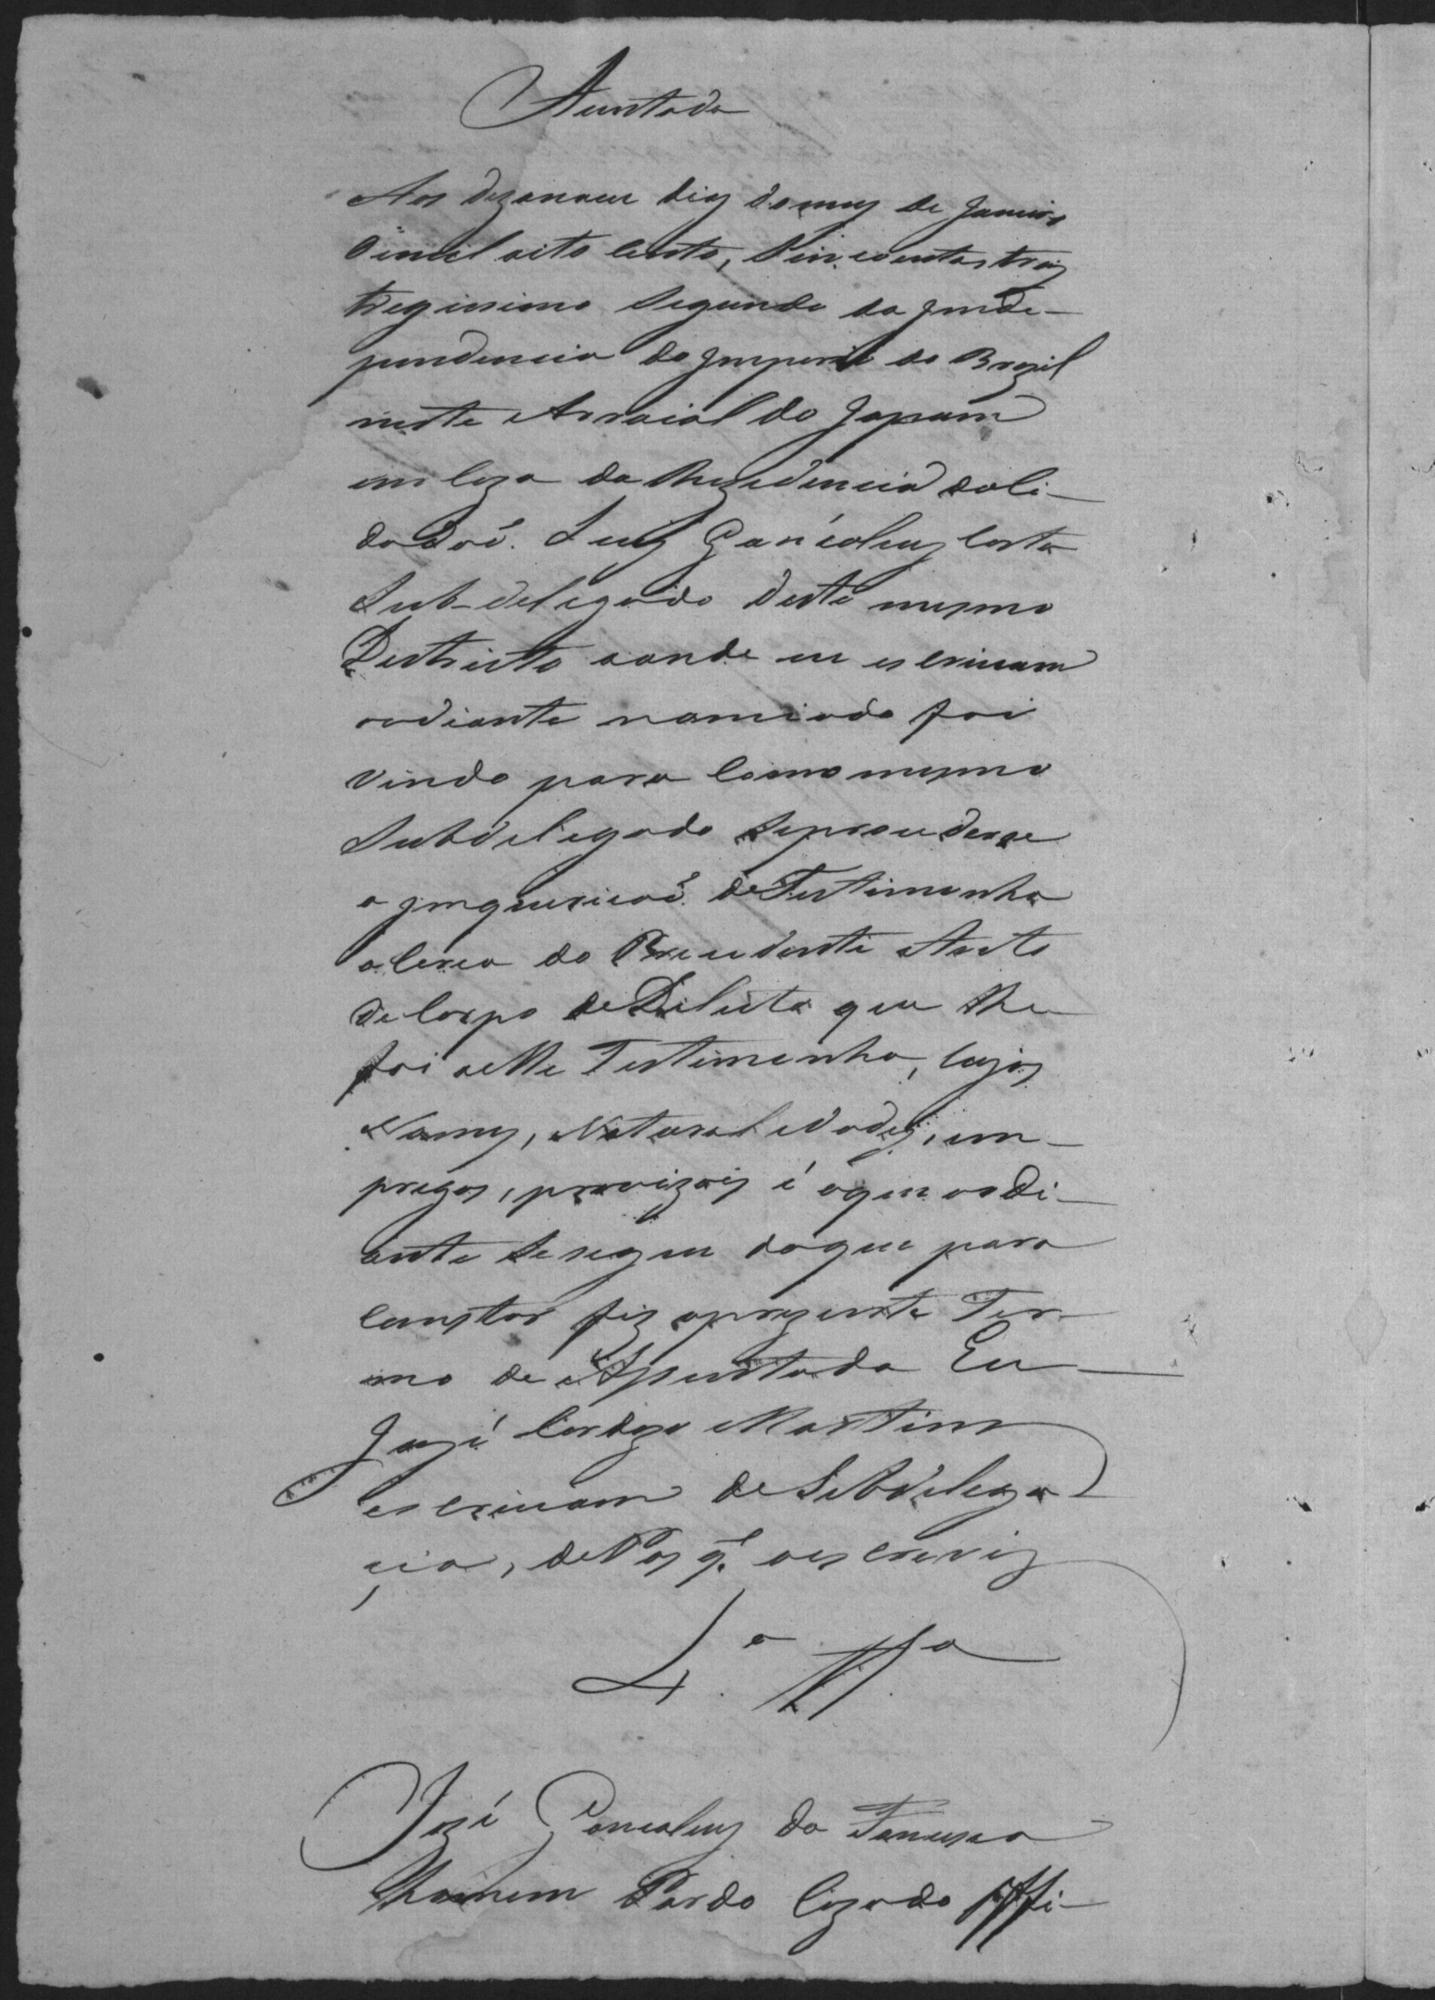 Asentada
Aos dezanove dias do mes de Janeiro
de mil oito centos, Sincoenta e tres
tregissimo Segundo da Jnde-
pendencia do Jmperio do Brazil
neste Arraial do Japam
em Caza da Rezidencia do Ci-
dadaõ. Luis Gonçalves Costa
Sub-delegado deste mesmo
Destricto aonde eu escrivam
aodiante nomiado foi
vindo para como mesmo
Subdelegado seproceder se
a Jnquiricaõ de Testimunha
a cerca do Precedente Auto
de Corpo de Delicto que Me
foi Testimunha, Cujos
Nomes, Naturalidades, em-
pregos, provizois é oque aodi-
ante se segue doque para
Constar fiz oprezente Ter-
mo de Asentada Eu
Jozé Cardozo Martins
escrivam de Subdelega-
cia, de Pas q.' oescreviz
1.a Tt.a
Jozé Goncalves da Fonseca
Homem Pardo Cazado Offi-